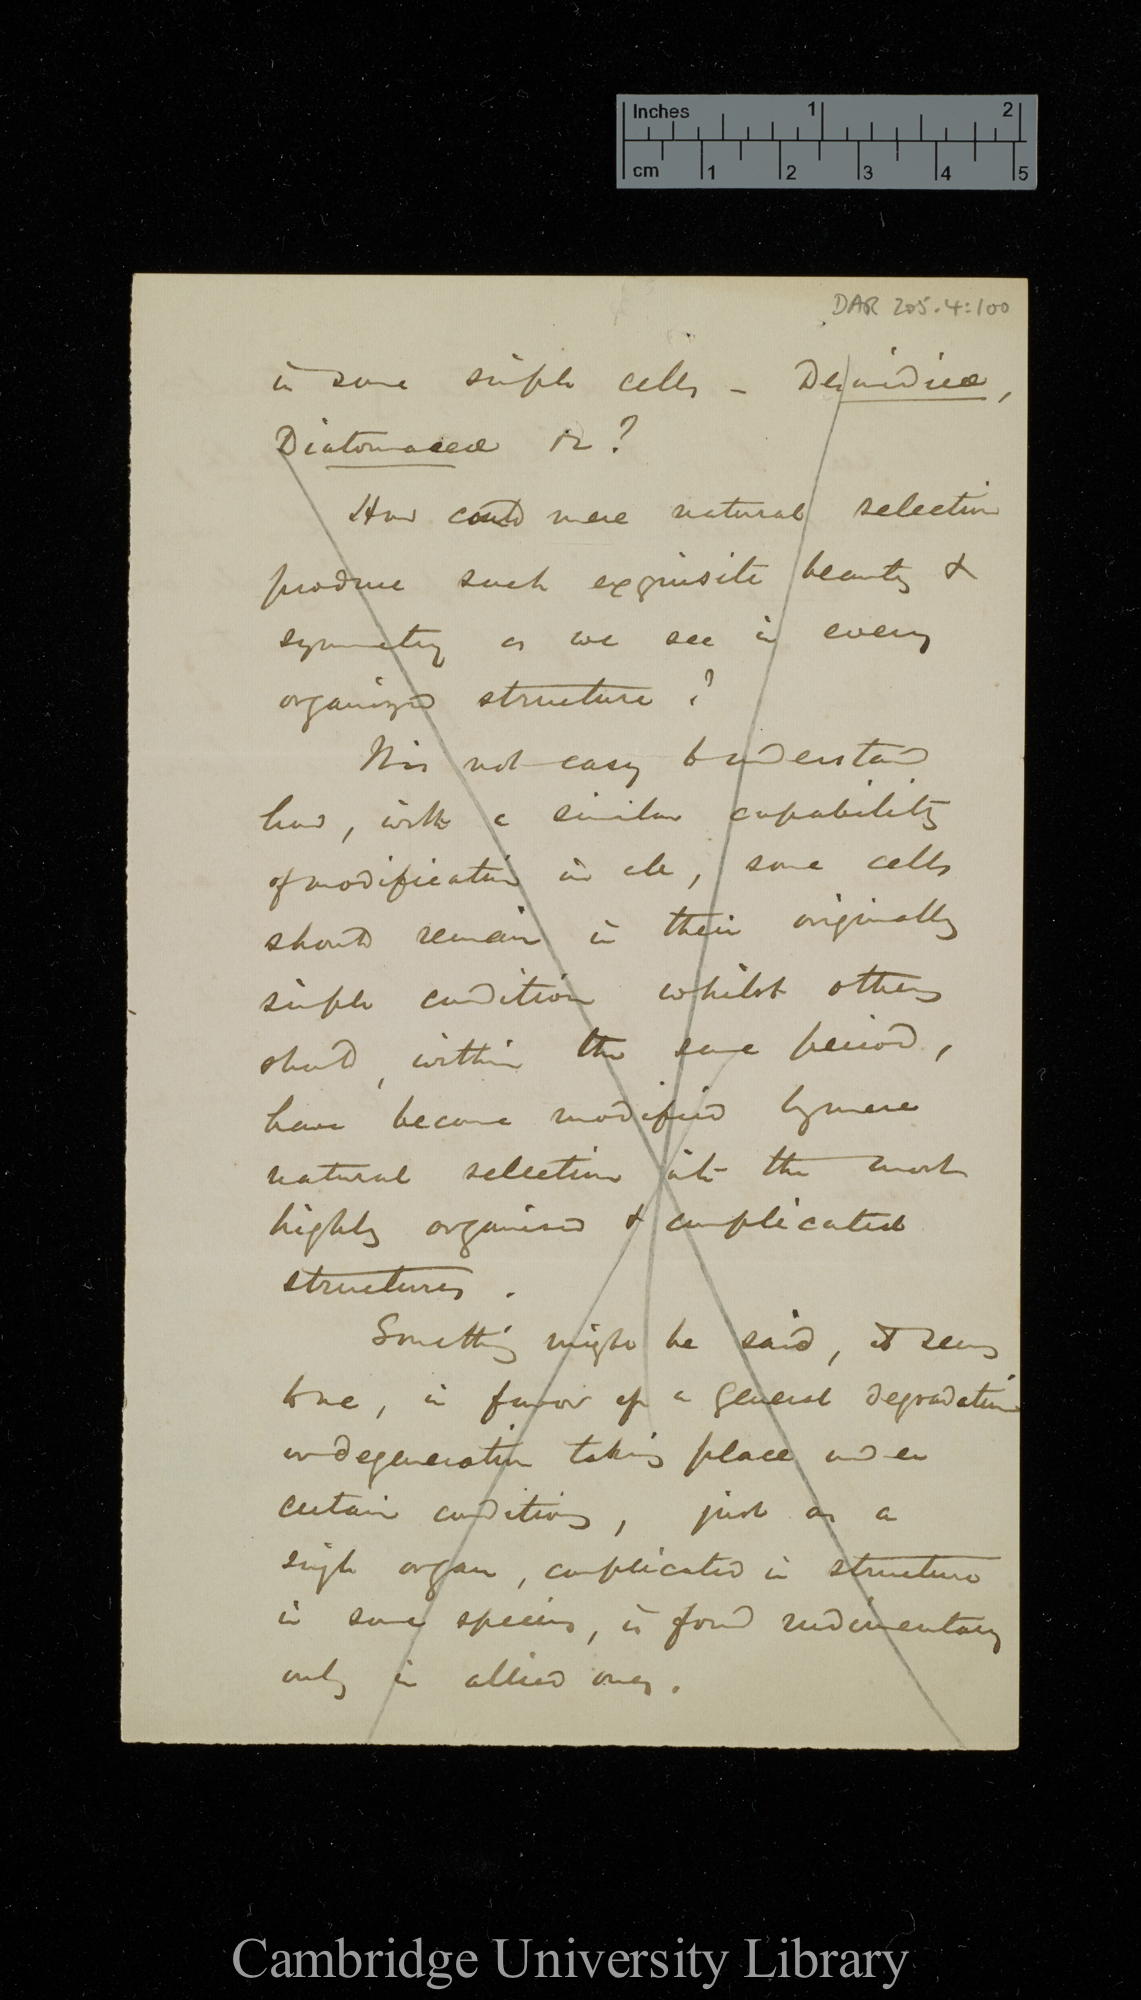 Inches 1 2
cm 1 2 3 4 5
DAR 205.4:100
in some simple cells – Desmidieæ,
Diatomaceæ &c?
How could mere natural selection
produce such exquisite beauty &
symmetry as we see in every
organized structure?
It is not easy to understand
how, with a similar capability
of modification in all, some cells
should remain in their originally
simple condition whilst others
should, within the same period,
have become modified by mere
natural selection into the most
highly organised & complicated
structures.
Something might be said, it seems
to me, in favor of a general degradation
or degeneration taking place under
certain conditions, just as a
single organ, complicated in structure
in some species, is found rudimentary
only in allied ones.
Cambridge University Library